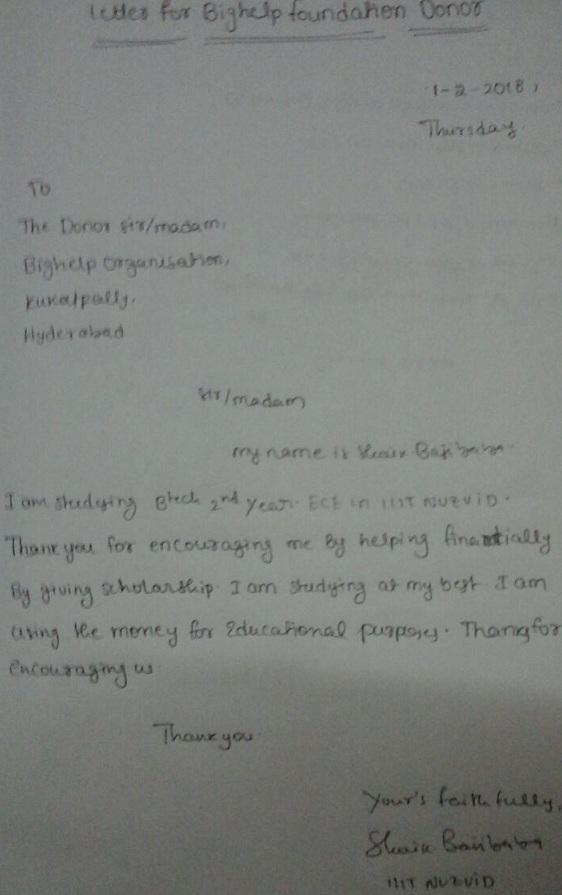 Letter for Bighelp foundation Donor
1-2-2018,
Thursday.
To
The Donor sir/madam,
Bighelp Organisation,
Kukatpally,
Hyderabad
Sir/madam
my name is Shaik Bajibaba.
I am studying Btech 2nd year ECE in IIIT NUZVID.
Thank you for encouraging me By helping financially
By giving scholarship. I am studying at my best. I am
using the money for Educational purposes. Thanks for
encouraging us
Thank you.
Your's faithfully,
Shaik Bajibaba
IIIT NUZVID